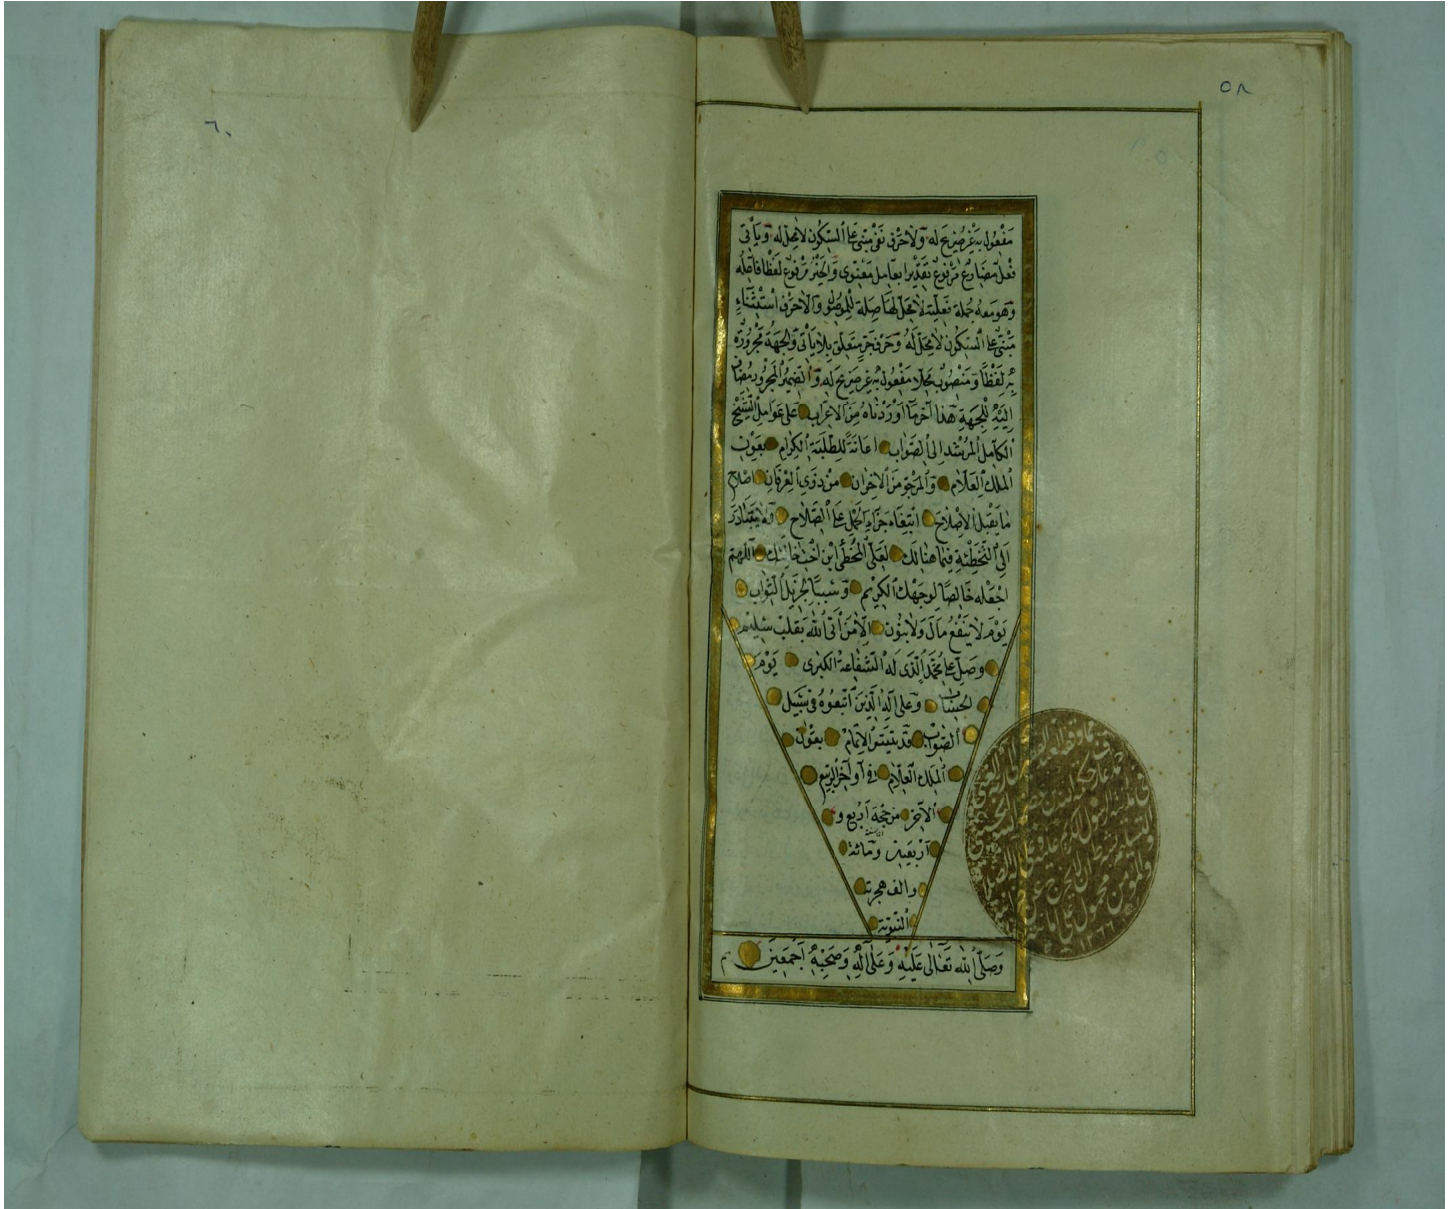 ٥٨
مَفْعُول بِهِ غير صريح له ولا حرف نفى مبنى على السكون لا محل له ويأتى
فعل مضارع مرفوع تقديرا بعامل معنوى والخير مرفوع لفظا فاعله
وهو معه جملة فعلية لا محل لها صلة للموصول والا حرف استثناء
مبنى على السكون لا محل له وحرف جر متعلق بلا يأتى والجهة مجرورة
به لفظا ومنصوب محلا مفعول به غير صريح له والضمير المجرور مضاف
اليه للجهة هذا آخر ما اوردناه من الاعراب على عوامل الشيخ
الكامل المرشد الى الصواب اعانة للطلبة الكرام بعون
الملك العلام والمرجو من الاخوان من ذوى العرفان اصلاح
ما يقبل الاصلاح ابتغاء جزاء الحمل على الصلاح ولا يتبادر
الى التخطئة فيما هنالك لعل المخطئ ابن اخت خالتك اللهم
اجعله خالصا لوجهك الكريم وسببا لجزيل الثواب
يوم لا ينفع مال ولا بنون الا من أتى الله بقلب سليم
وصل على محمد الذى له الشفاعة الكبرى يوم
الحساب وعلى آله الذين اتبعوه فى سبيل
الصواب قد تيسر الاتمام بعون
الملك العلام فى أواخر الربيع
الآخر من حجة أربع و
أربعين ومائة
والف هجرته
النبوية
وصلى الله تعالى عليه وعلى آله وصحبه أجمعين م
١٢٦٦
٦٠